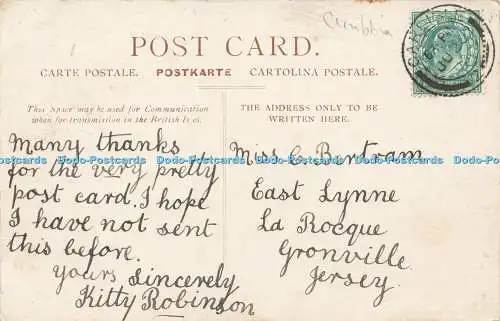 Cumbria
POST CARD.
CARTE POSTALE. POSTKARTE CARTOLINA POSTALE.
This Space may be used for Communication
when for transmission in the British Isles.
THE ADDRESS ONLY TO BE
WRITTEN HERE.
Many thanks
for the very pretty
post card. I hope
I have not sent
this before.
Yours Sincerely
Kitty Robinson
Miss C. Bertram
East Lynne
La Rocque
Gronville
Jersey.
Dodo-Postcards Dodo-Postcards Dodo-Postcards Dodo-Postcards Dodo-Postcards Dodo-Postcards